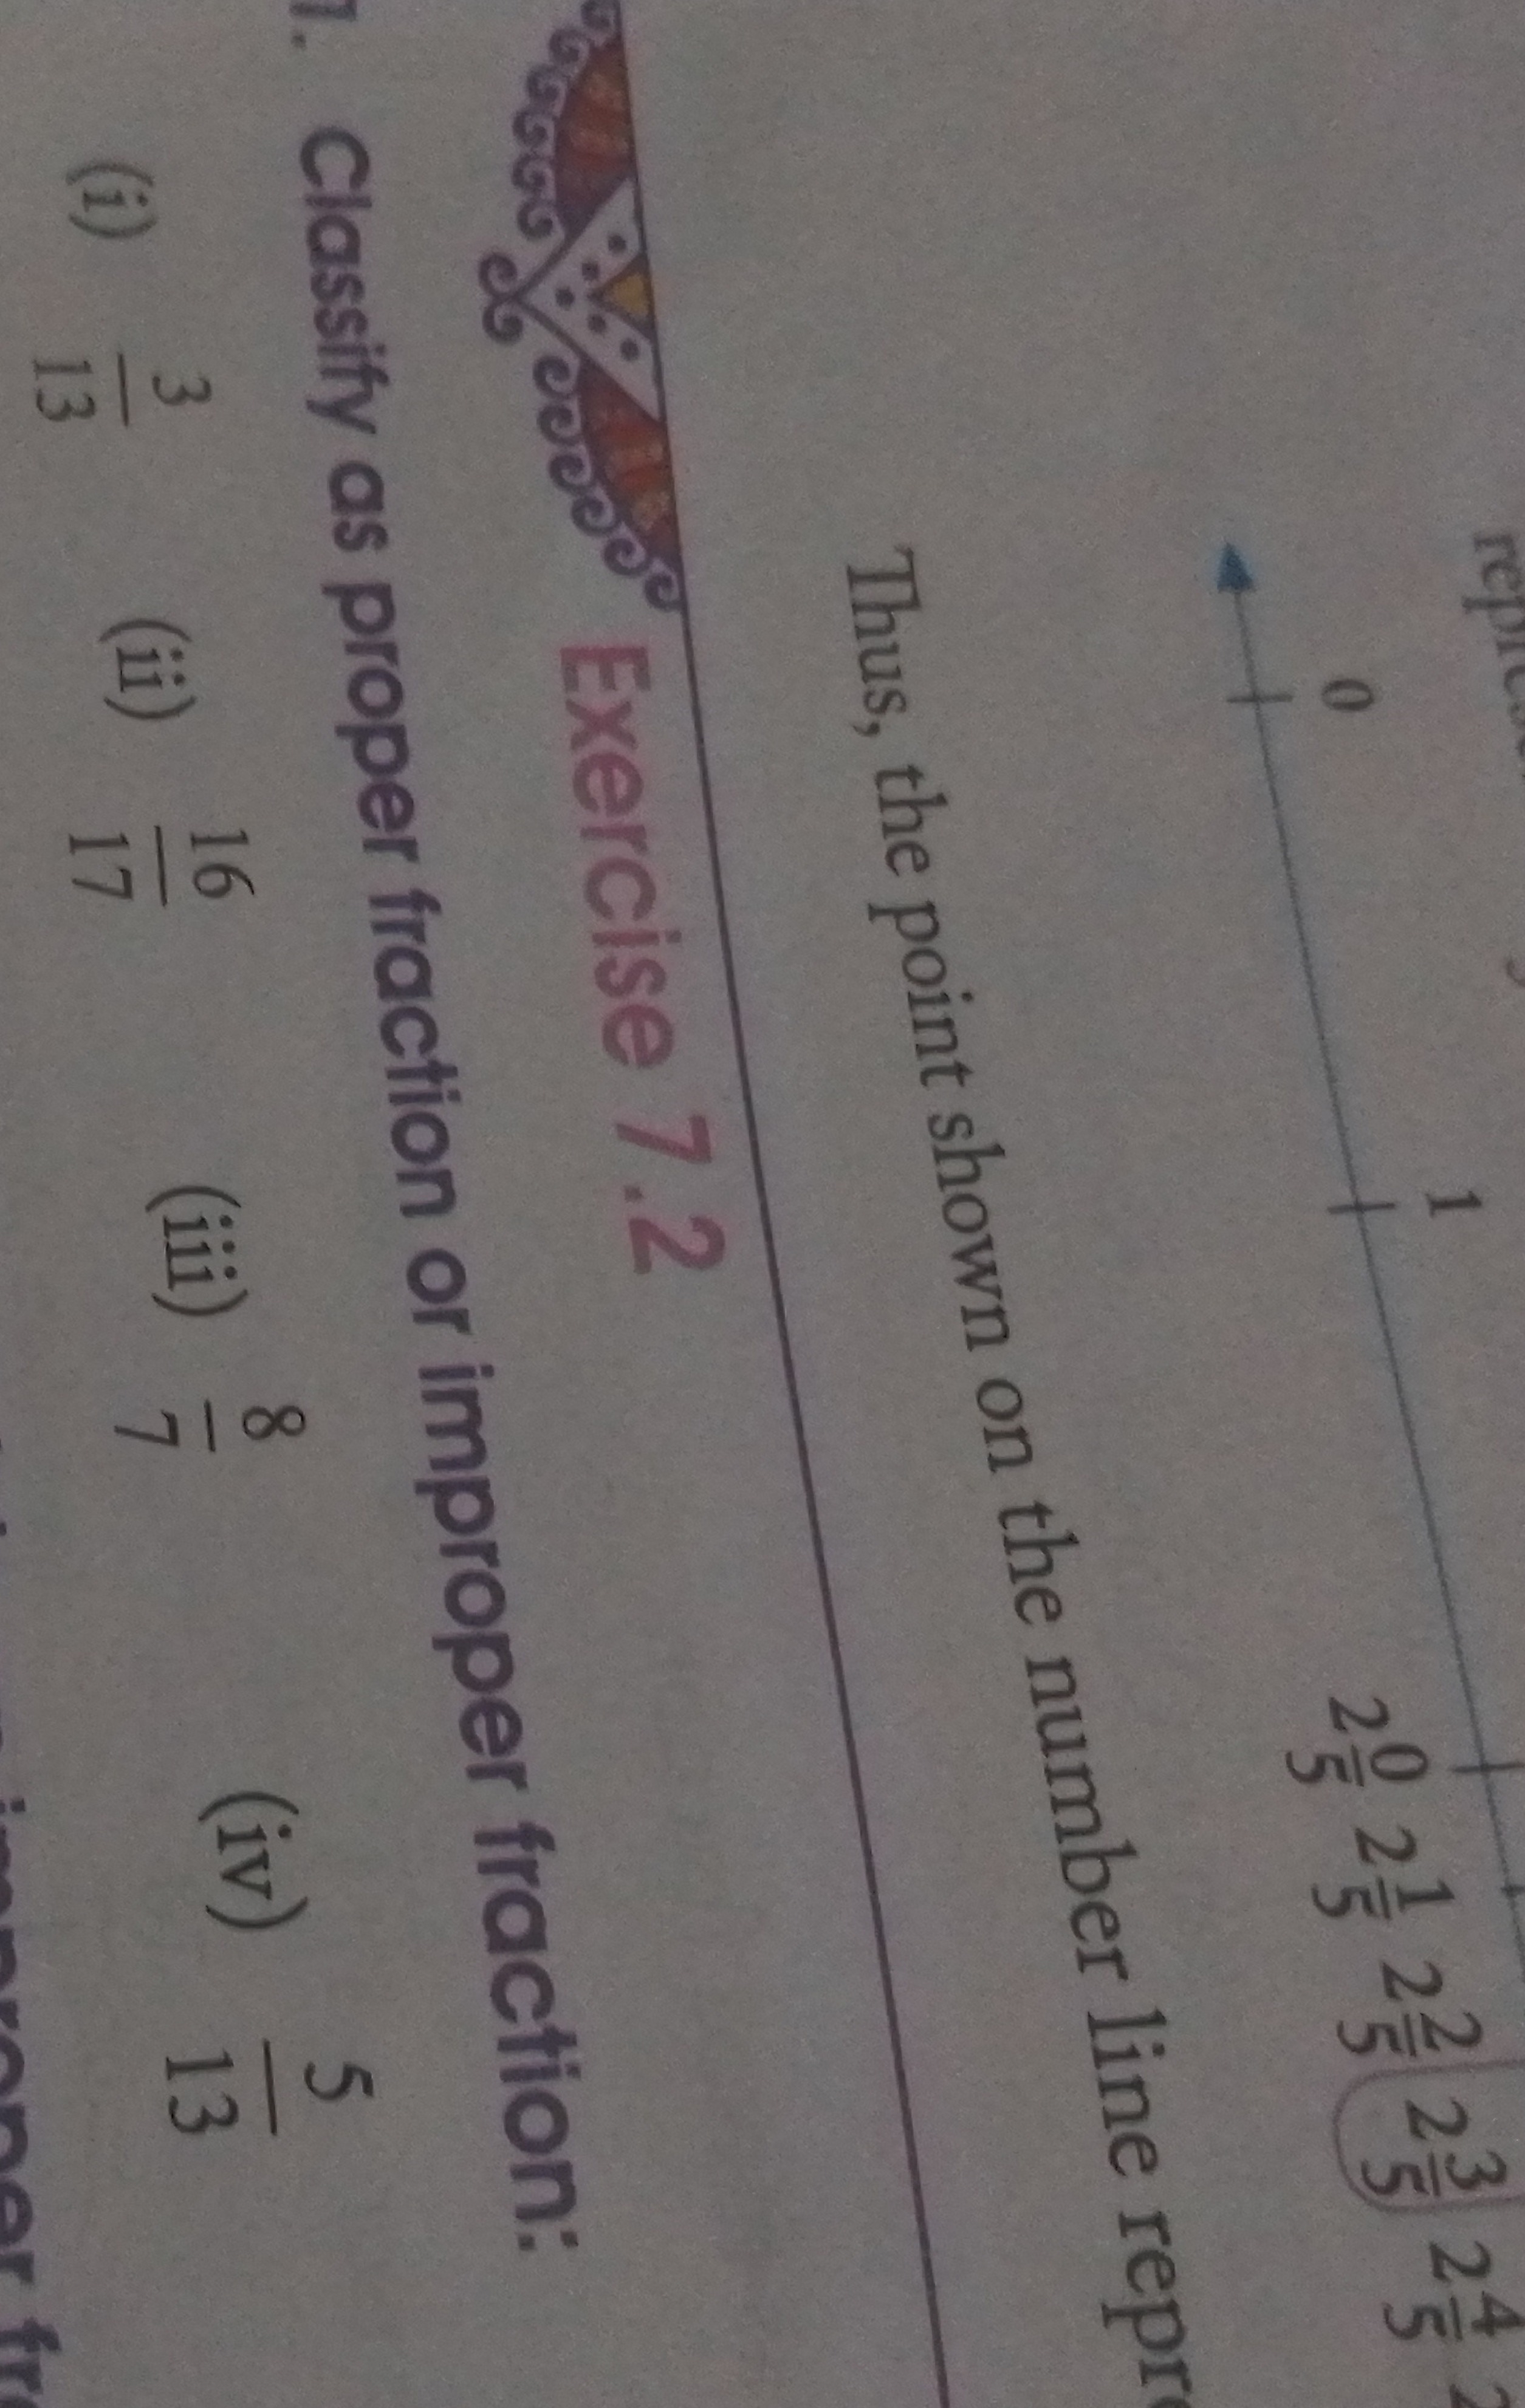 0 1
2 0/5 2 1/5 2 2/5 2 3/5 2 4/5
Thus, the point shown on the number line
Exercise 7.2
1. Classify as proper fraction or improper fraction:
(i) 3/13 (ii) 16/17 (iii) 8/7 (iv) 5/13
improper